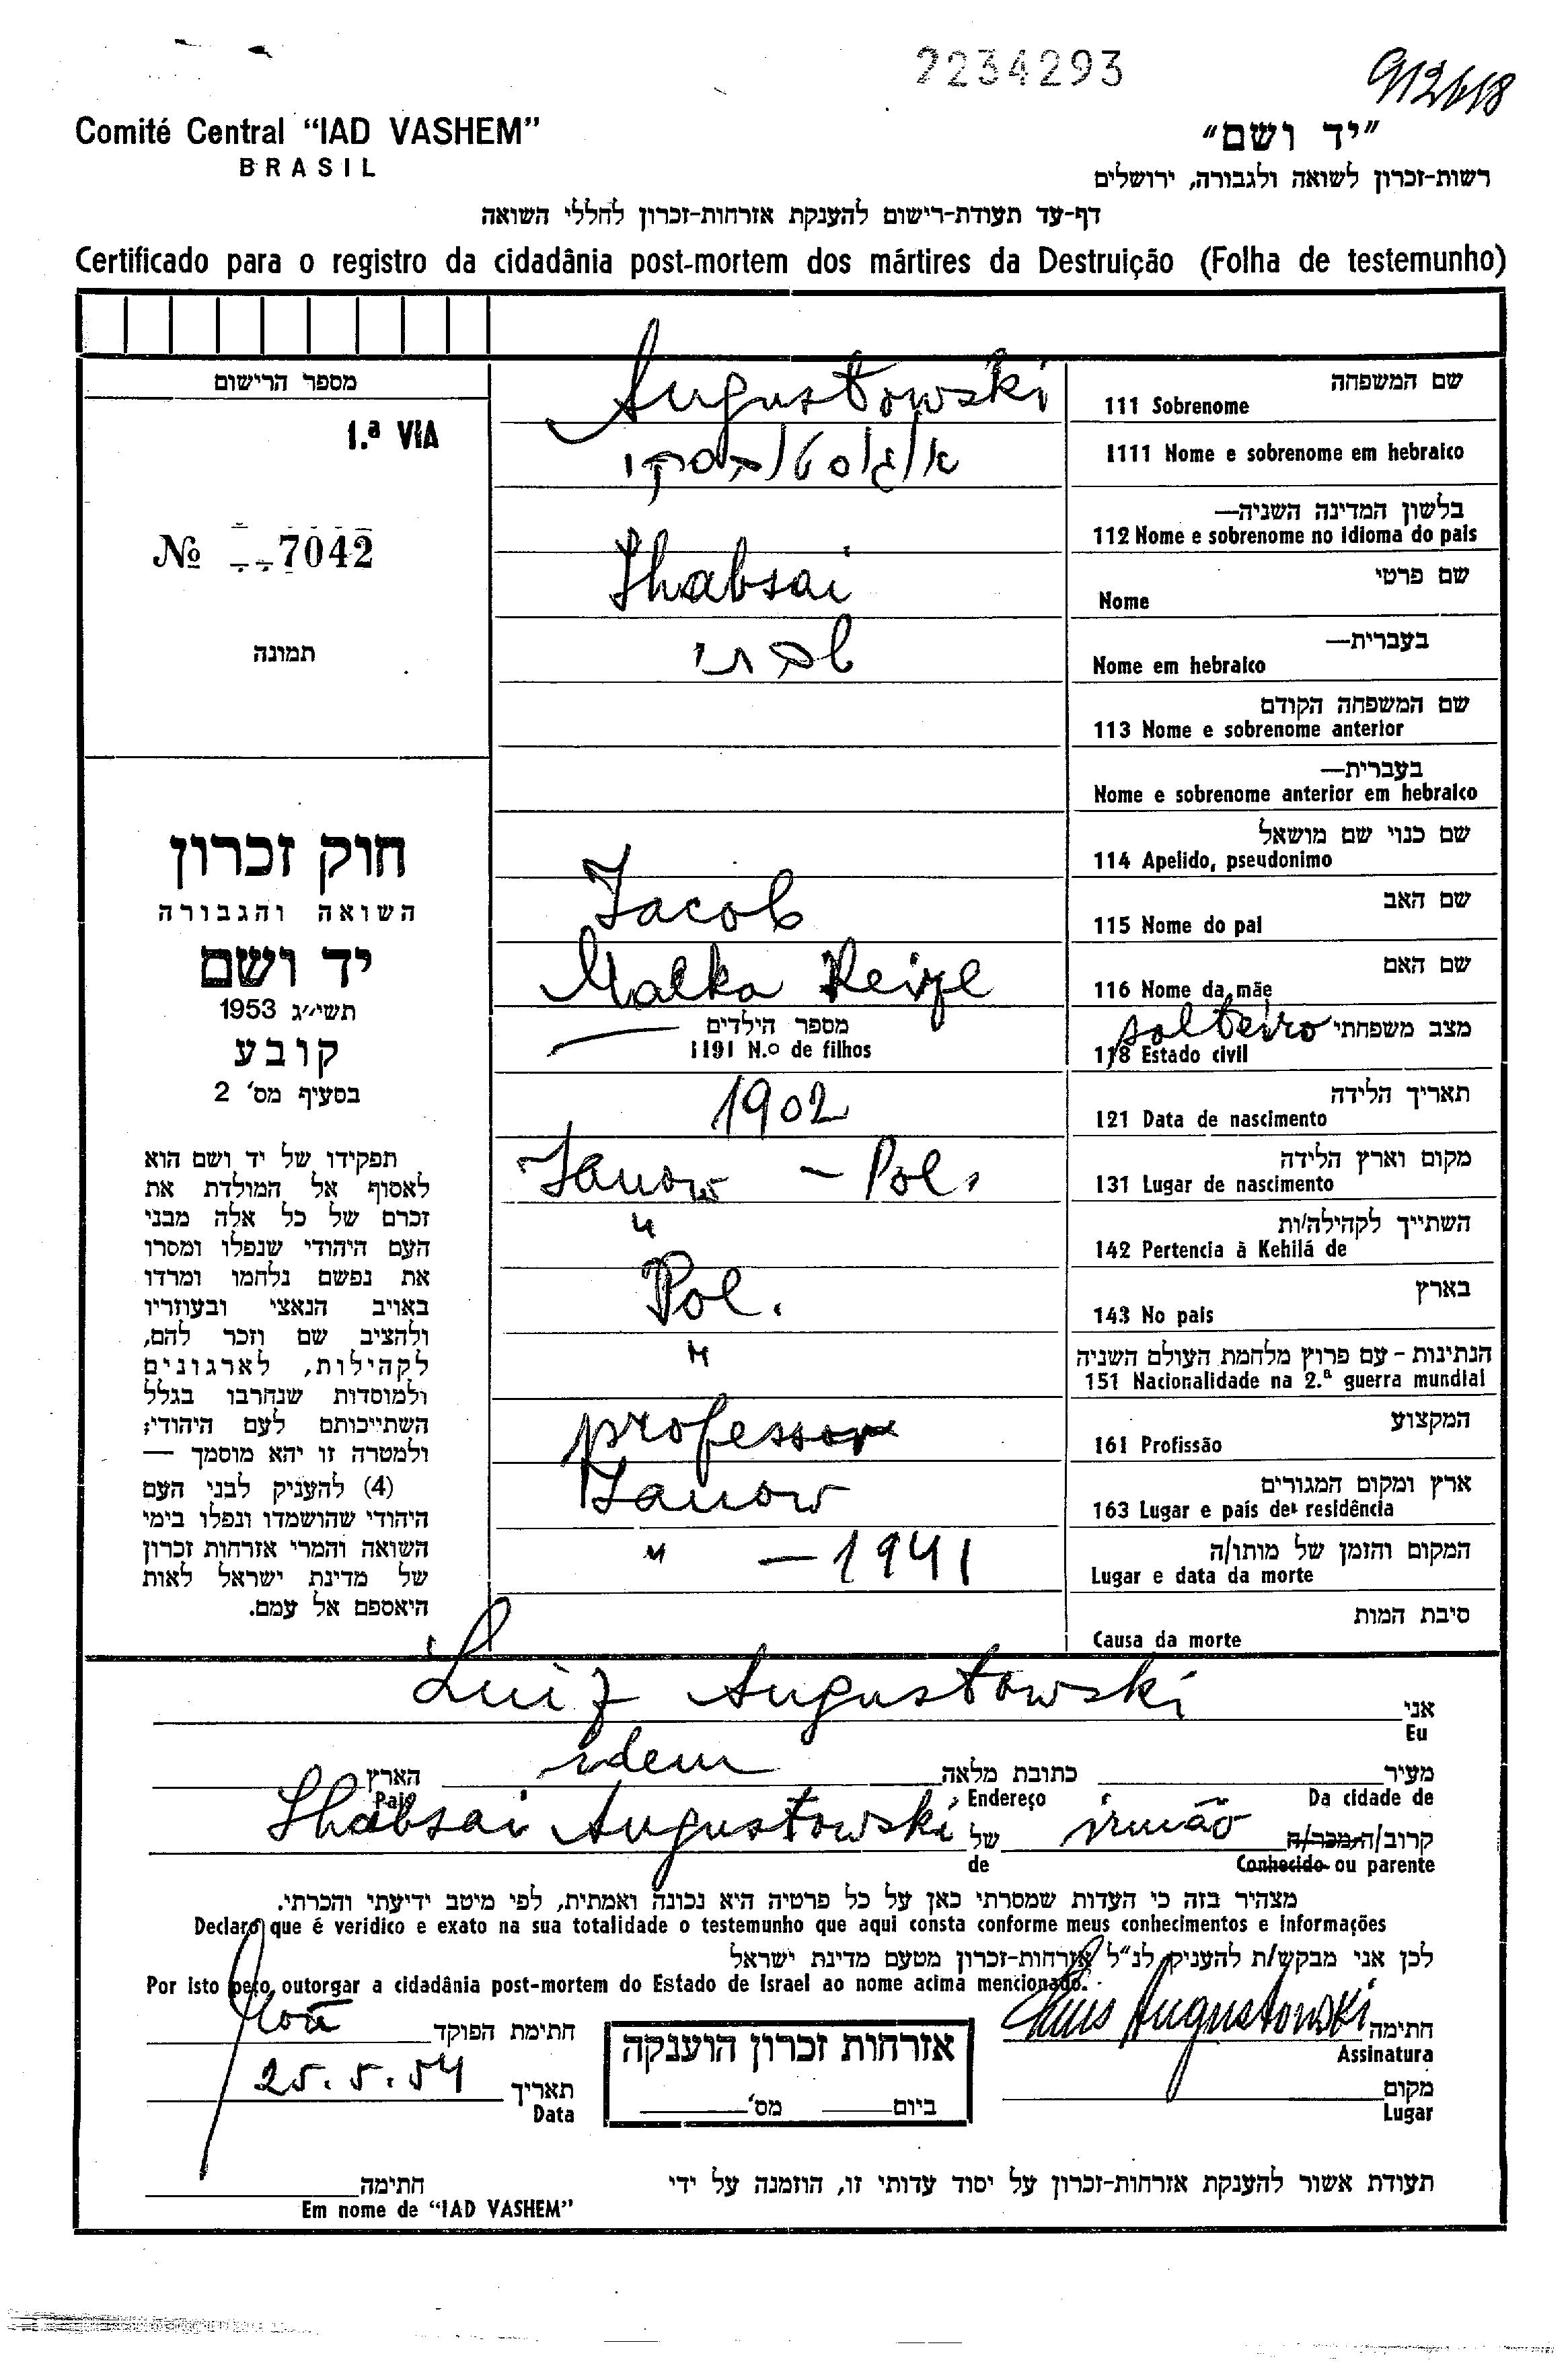 2234293
912618
Comité Central “IAD VASHEM”
BRASIL
“יד ושם”
רשות-זכרון לשואה ולגבורה, ירושלים
דף-עד תעודת-רישום להענקת אזרחות-זכרון לחללי השואה
Certificado para o registro da cidadânia post-mortem dos mártires da Destruição (Folha de testemunho)
מספר הרישום
1.ª VIA
Nº 7042
תמונה
חוק זכרון
השואה והגבורה
יד ושם
תשי״ג 1953
קובע
בסעיף מס' 2
תפקידו של יד ושם הוא
לאסוף אל המולדת את
זכרם של כל אלה מבני
העם היהודי שנפלו ומסרו
את נפשם נלחמו ומרדו
באויב הנאצי ובעוזריו
ולהציב שם וזכר להם,
לקהילות, לארגונים
ולמוסדות שנחרבו בגלל
השתייכותם לעם היהודי;
ולמטרה זו יהא מוסמך —
(4) להעניק לבני העם
היהודי שהושמדו ונפלו בימי
השואה והמרי אזרחות זכרון
של מדינת ישראל לאות
היאספם אל עמם.
שם המשפחה
111 Sobrenome
Augustowski
1111 Nome e sobrenome em hebraico
אוגוסטובסקי
בלשון המדינה השניה—
112 Nome e sobrenome no idioma do pais
שם פרטי
Nome
Shabsai
בעברית—
Nome em hebraico
שבתי
שם המשפחה הקודם
113 Nome e sobrenome anterior
בעברית—
Nome e sobrenome anterior em hebraico
שם כנוי שם מושאל
114 Apelido, pseudonimo
שם האב
115 Nome do pai
Jacob
שם האם
116 Nome da mãe
Malka Reizl
מצב משפחתי
118 Estado civil
solteiro
מספר הילדים
1191 N.º de filhos
תאריך הלידה
121 Data de nascimento
1902
מקום וארץ הלידה
131 Lugar de nascimento
Janow - Pol.
השתייך לקהילה/ות
142 Pertencia à Kehilá de
"
בארץ
143 No pais
Pol.
הנתינות - עם פרוץ מלחמת העולם השניה
151 Nacionalidade na 2.ª guerra mundial
"
המקצוע
161 Profissão
professor
ארץ ומקום המגורים
163 Lugar e país de residência
Janow
המקום והזמן של מותו/ה
Lugar e data da morte
" - 1941
סיבת המות
Causa da morte
אני
Eu
Luiz Augustowski
מעיר
Da cidade de
כתובת מלאה
Endereço
idem
הארץ
Pais
קרוב/ה מכר/ה
Conhecido ou parente
irmão
של
de
Shabsai Augustowski
מצהיר בזה כי העדות שמסרתי כאן על כל פרטיה היא נכונה ואמתית, לפי מיטב ידיעתי והכרתי.
Declaro que é veridico e exato na sua totalidade o testemunho que aqui consta conforme meus conhecimentos e informações
לכן אני מבקש/ת להעניק לנ״ל אזרחות-זכרון מטעם מדינת ישראל
Por isto peço outorgar a cidadânia post-mortem do Estado de Israel ao nome acima mencionado.
חתימה
Assinatura
Luis Augustowski
מקום
Lugar
אזרחות זכרון הוענקה
ביום מס'
חתימת הפוקד
תאריך
Data
25.5.54
תעודת אשור להענקת אזרחות-זכרון על יסוד עדותי זו, הוזמנה על ידי
חתימה
Em nome de “IAD VASHEM”